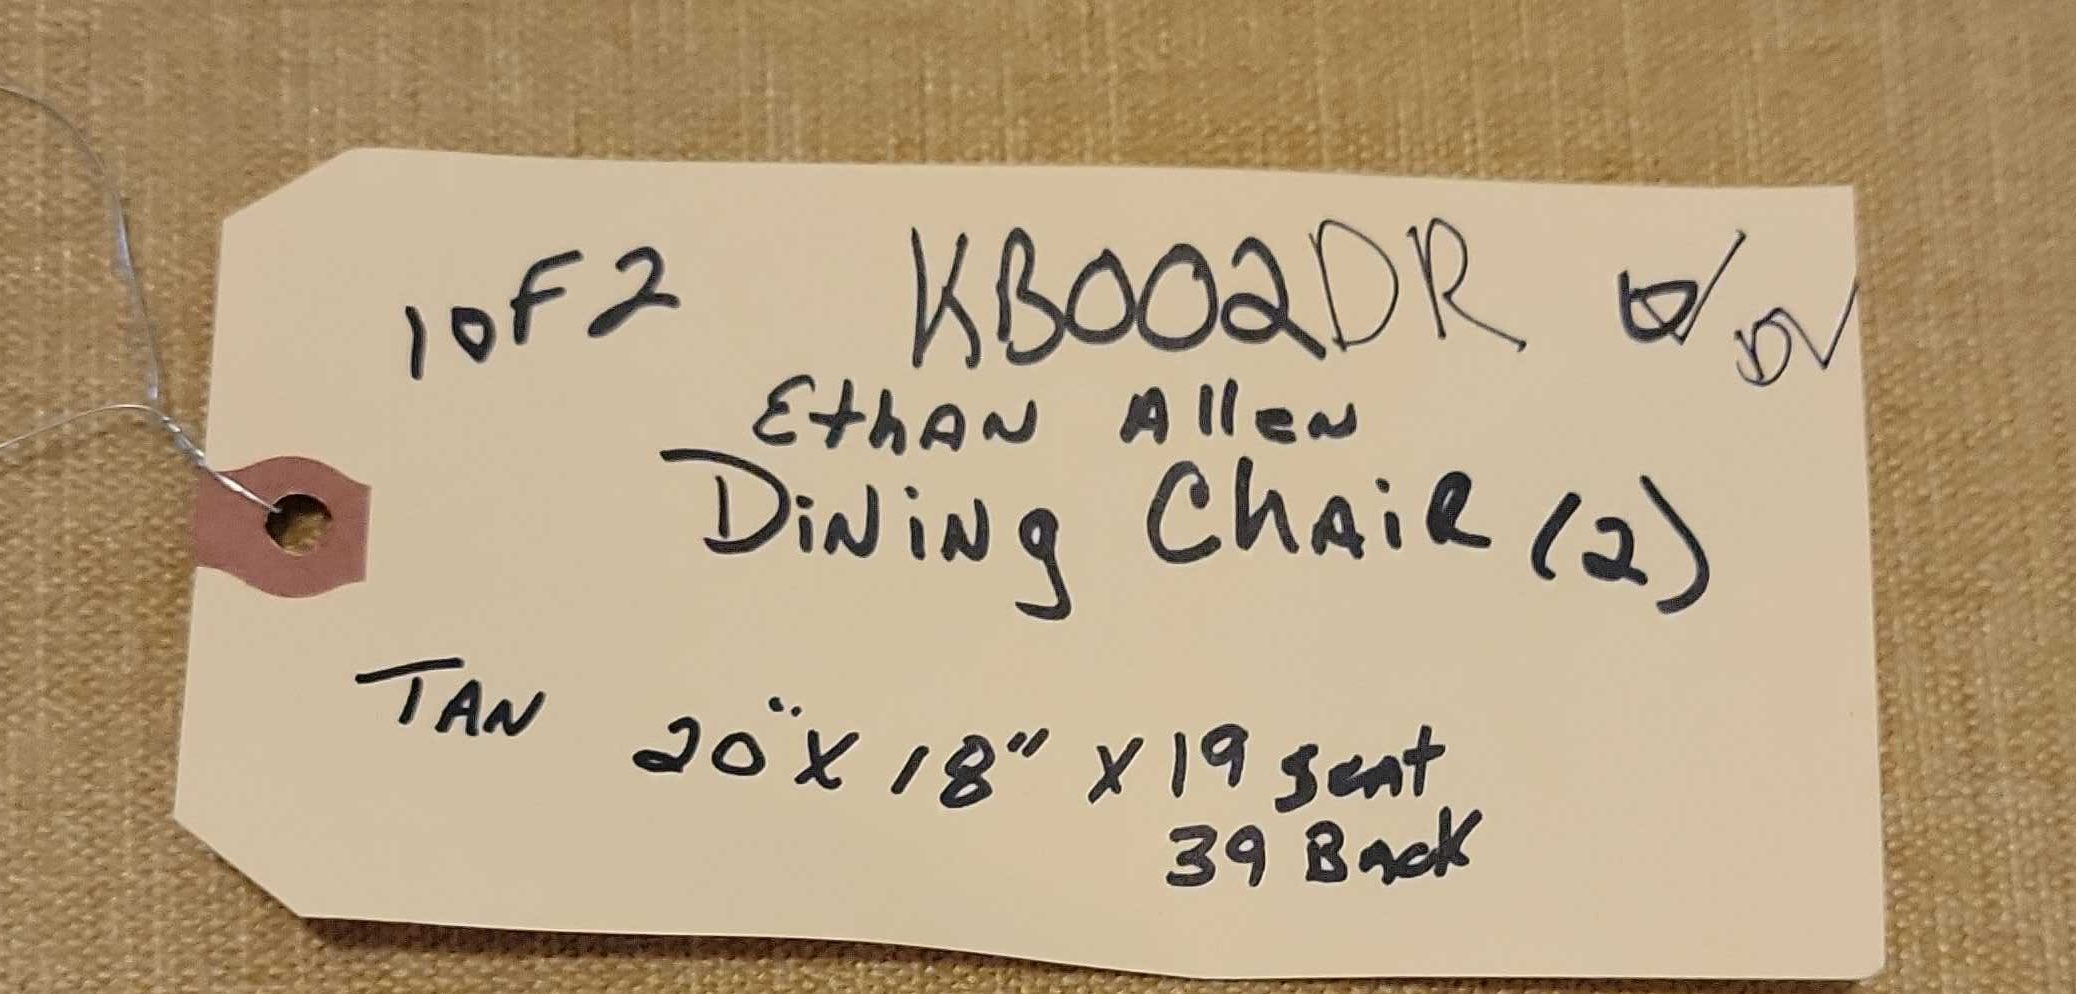 1 OF 2 KB002DR
EthAN Allen
DiNiNg ChAiR (2)
TAN 20" X 18" X 19 seat
39 Back